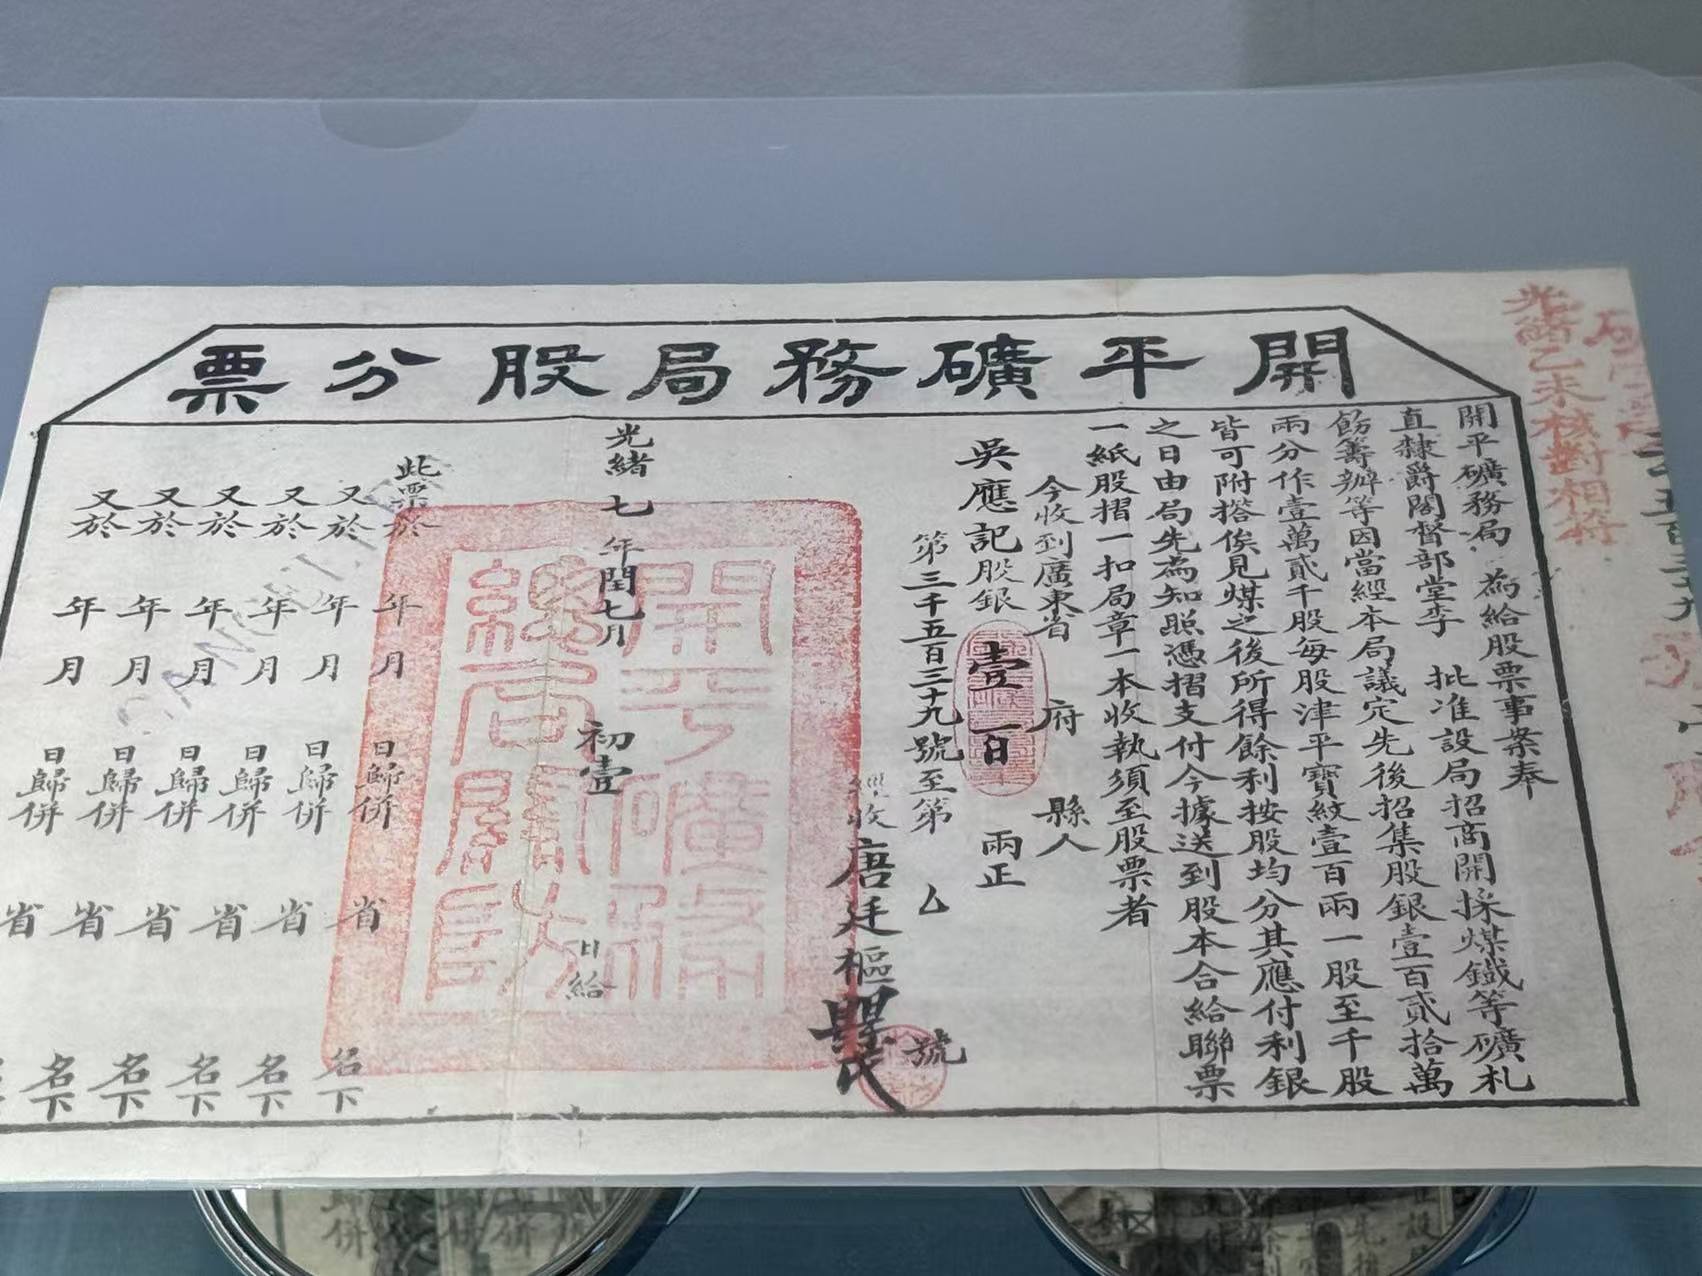 開平礦務局股分票
光緒乙未核對相符
開平礦務局 為給股票事案奉
直隸爵閣督部堂李 批准設局招商開採煤鐵等礦札
飭籌辦等因當經本局議定先後招集股銀壹百貳拾萬
兩分作壹萬貳千股每股津平寶紋壹百兩一股至千股
皆可附搭俟見煤之後所得餘利按股均分其應付利銀
之日由局先為知照憑摺支付今據送到股本合給聯票
一紙股摺一扣局章一本收執須至股票者
今收到廣東省 府 縣人
吳應記股銀 壹百 兩正
第三千五百三十九號至第 乙 號
經收 唐廷樞
光緒七年閏七月初壹日給
開平礦務總局關防
此票於 年 月 日歸併 省 名下
又於 年 月 日歸併 省 名下
又於 年 月 日歸併 省 名下
又於 年 月 日歸併 省 名下
又於 年 月 日歸併 省 名下
又於 年 月 日歸併 省
CANCELLED